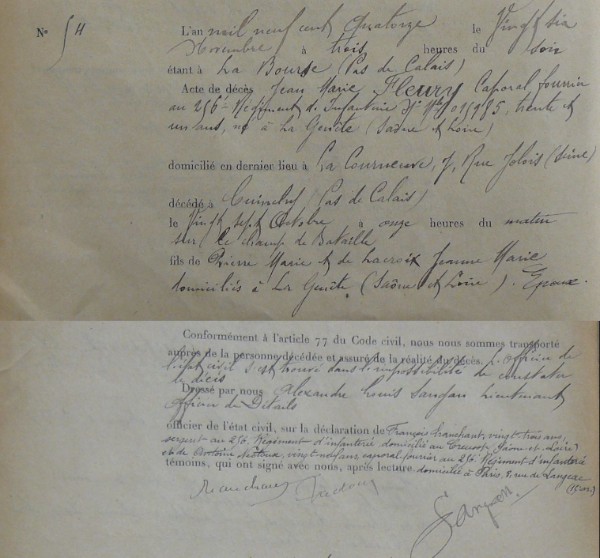 No 54
L'an mil neuf cent Quatorze le Vingt six
Novembre à trois heures du soir
étant à La Bourse (Pas de Calais)
Acte de décès Jean Marie Fleury Caporal fourrier
au 256e Régiment de Infanterie No Mle 015985, trente et
un ans, né à La Genête (Saône et Loire)
domicilié en dernier lieu à La Courneuve, 7, Rue (Seine)
décédé à Cuinchy (Pas de Calais)
le Vingt sept Octobre à onze heures du matin
sur le champ de Bataille
fils de Pierre Marie et de Lacroix Jeanne Marie
domiciliés à La Genête (Saône et Loire). Epoux.
Conformément à l'article 77 du Code civil, nous nous sommes transporté
auprès de la personne décédée et assuré de la réalité du décès. L'Officier de
l'état civil s'est trouvé dans l'impossibilité de constater
le décès
Dressé par nous Alexandre Louis Lieutenant
Officier de Détails
officier de l'état civil, sur la déclaration de François vingt-trois ans,
sergent au 256 Régiment d'infanterie domicilié au Creusot, Saône-et-Loire
et de vingt-neuf ans caporal fourrier au 256 Régiment d'infanterie
témoins, qui ont signé avec nous, après lecture domicilié à Paris, rue de Langeac